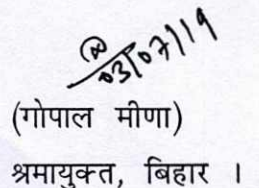 03/07/19
(गोपाल मीणा)
श्रमायुक्त, बिहार ।